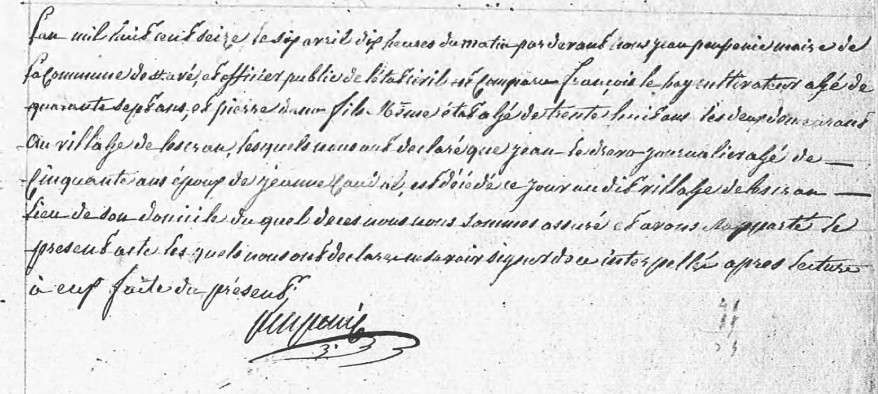 L'an mil huit cent seize le six avril dix heures du matin par devant nous jean maire de
la Commune de staré, et officier public de l'état civil est Comparu François le hay cultivateur agé de
quarante sept ans, et pierre fils Même état agé de trente huit ans les deux demeurant
au village de lescran, lesquels nous ont declaré que jean le journalier agé de
Cinquante ans époux de jeanne est décédé ce jour au dit village de lescran
lieu de son domicile du quel deces nous nous sommes assuré et avons Rapporté le
présent acte les quels nous ont declare ne savoir signer de ce interpellé apres lecture
à eux faite du présent,